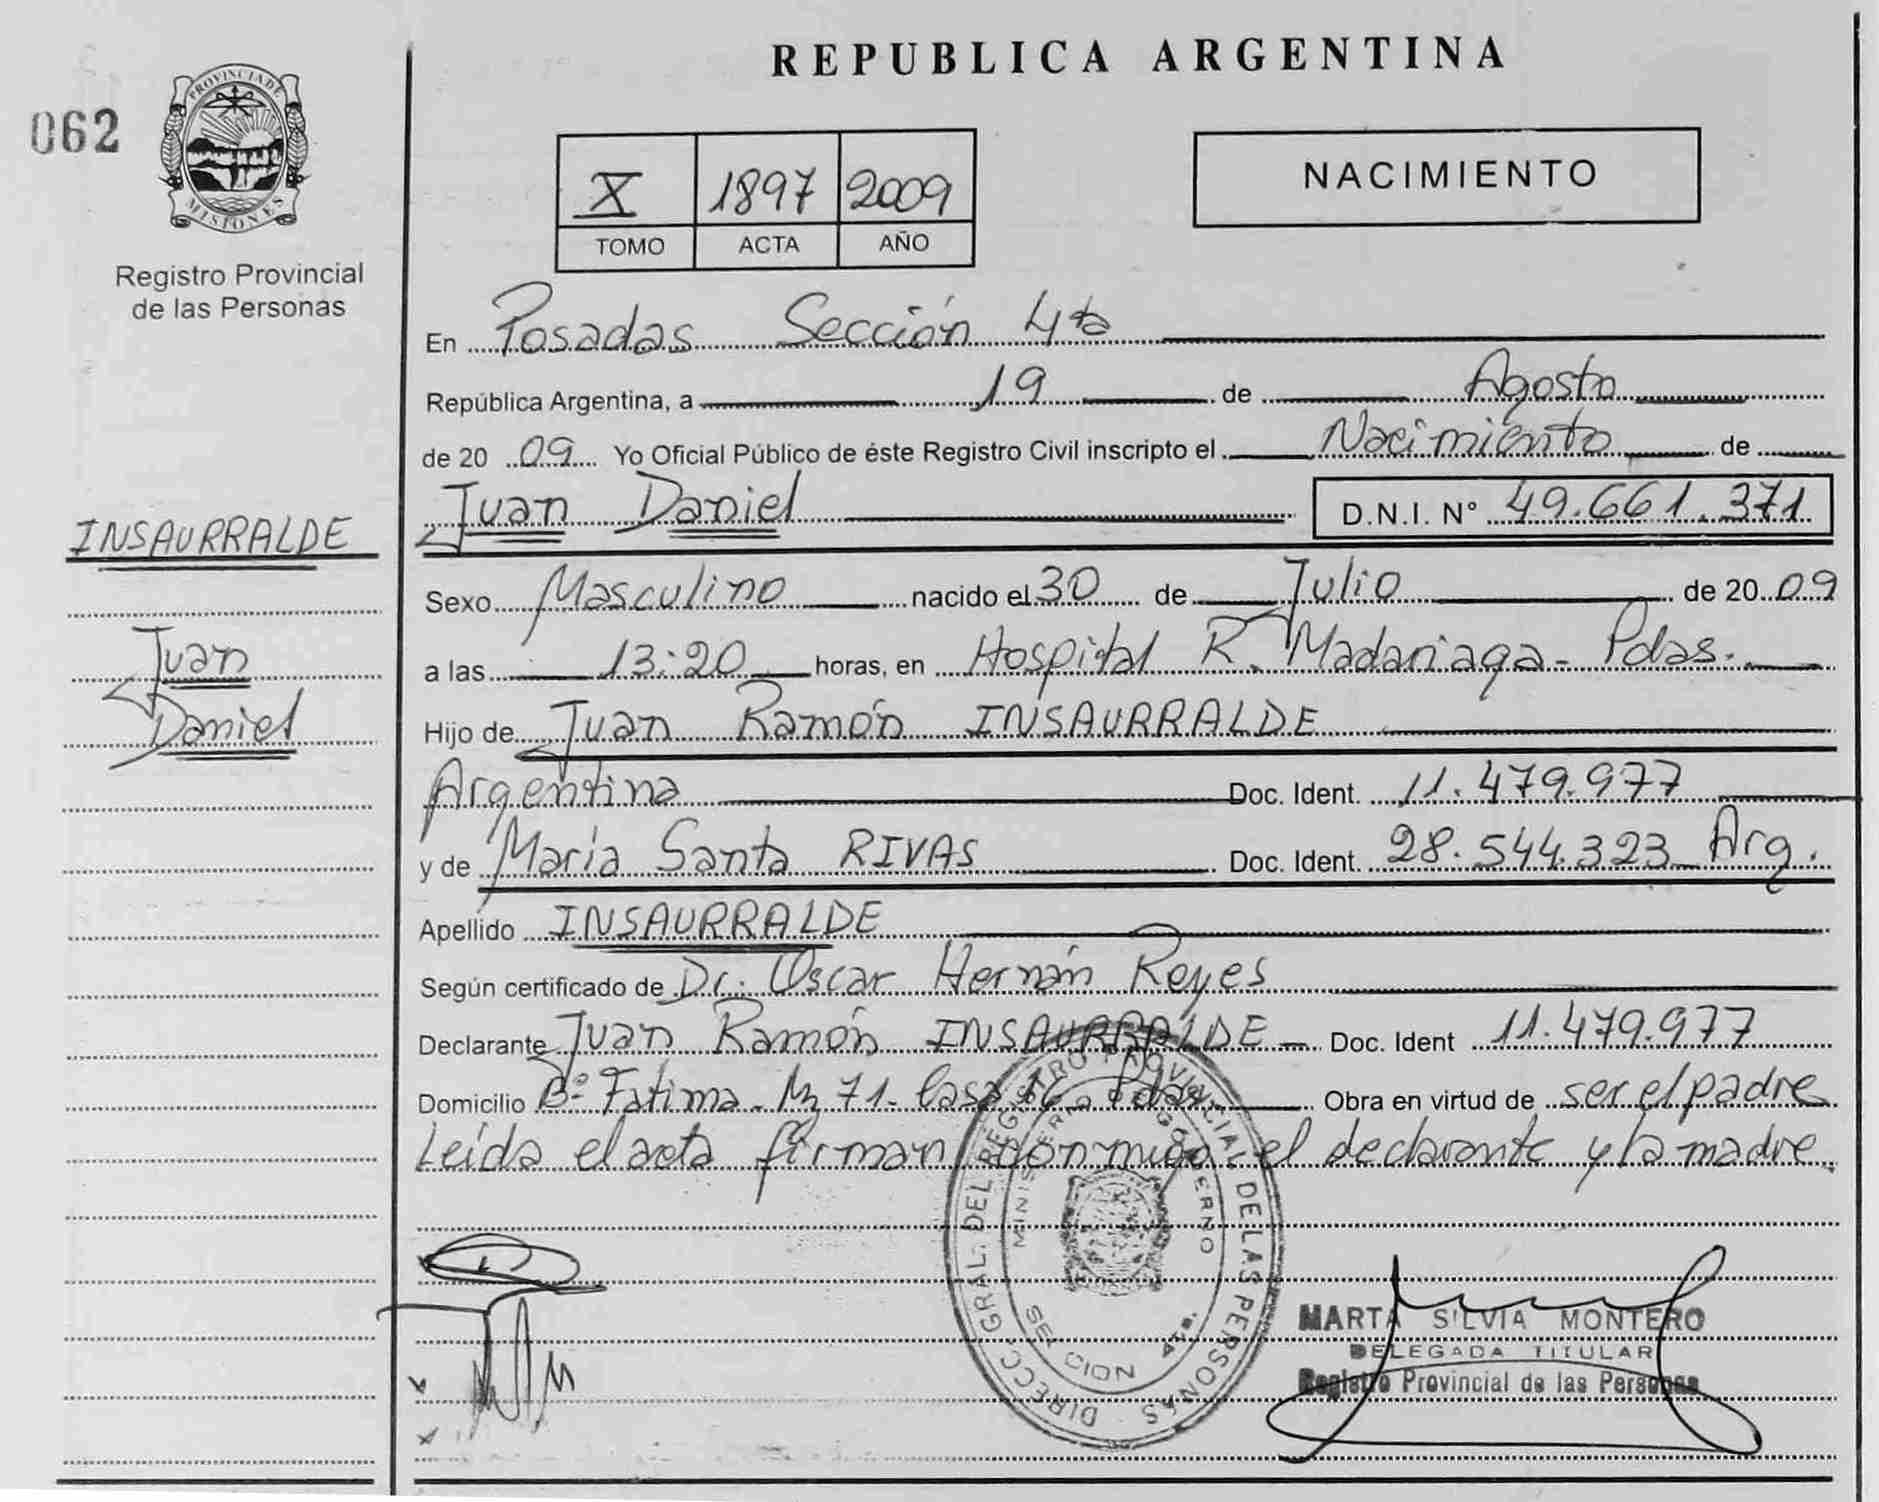 REPUBLICA ARGENTINA
062
PROVINCIA DE
MISIONES
Registro Provincial
de las Personas
X 1897 2009
TOMO ACTA AÑO
NACIMIENTO
En Posadas Sección 4ta
República Argentina, a 19 de Agosto
de 20 09 Yo Oficial Público de éste Registro Civil inscripto el Nacimiento de
Juan Daniel D.N.I. N° 49.661.371
INSAURRALDE
Juan
Daniel
Sexo Masculino nacido el 30 de Julio de 20 09
a las 13:20 horas, en Hospital R. Madariaga - Pdas.
Hijo de Juan Ramón INSAURRALDE
Argentina Doc. Ident. 11.479.977
y de María Santa RIVAS Doc. Ident. 28.544.323 Arg.
Apellido INSAURRALDE
Según certificado de Dr. Oscar Hernán Reyes
Declarante Juan Ramón INSAURRALDE - Doc. Ident 11.479.977
Domicilio B° Fatima - Mz 71 - Casa 16 - Pdas. Obra en virtud de ser el padre
Leída el acta firman conmigo el declarante y la madre.
DIRECC. GRAL. DEL REGISTRO PROVINCIAL DE LAS PERSONAS
MINISTERIO GOBIERNO
SECCION 4ta.
MARTA SILVIA MONTERO
DELEGADA TITULAR
Registro Provincial de las Personas